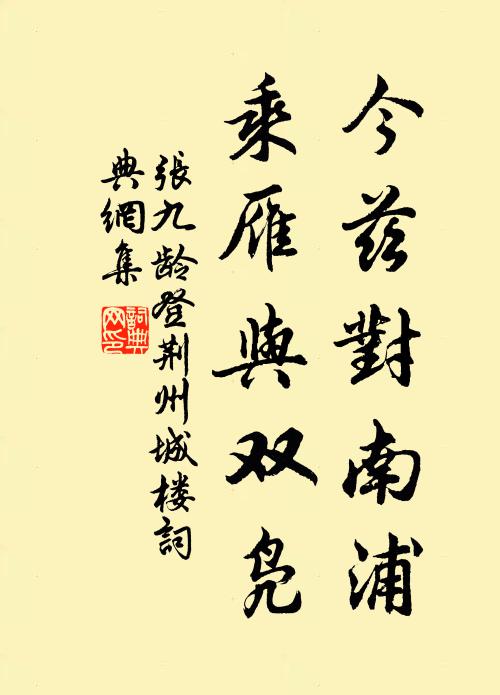 今茲對南浦
乘雁與双凫
張九龄登荆州城楼詞
典網集
詞典
网印